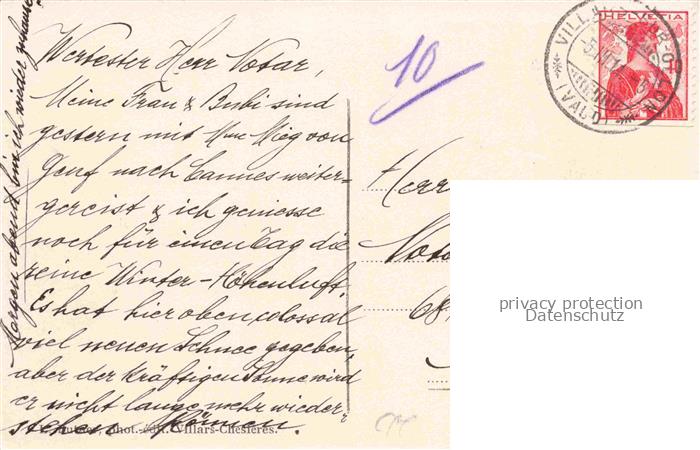 Wertester Herr Notar,
Meine Frau & Bubi sind
gestern mit Mme Mieg von
Genf nach Cannes weiter-
gereist & ich geniesse
noch für einen Tag die
reine Winter-Höhenluft.
Es hat hier oben colossal
viel neuen Schnee gegeben,
aber der kräftigen Sonne wird
er nicht lange mehr wieder-
stehen können.
Morgen abend bin ich wieder zuhause
phot.-édit. Villars-Chesières.
10
HELVETIA
VILLARS
(VAUD)
Herr
Nota
68
privacy protection
Datenschutz